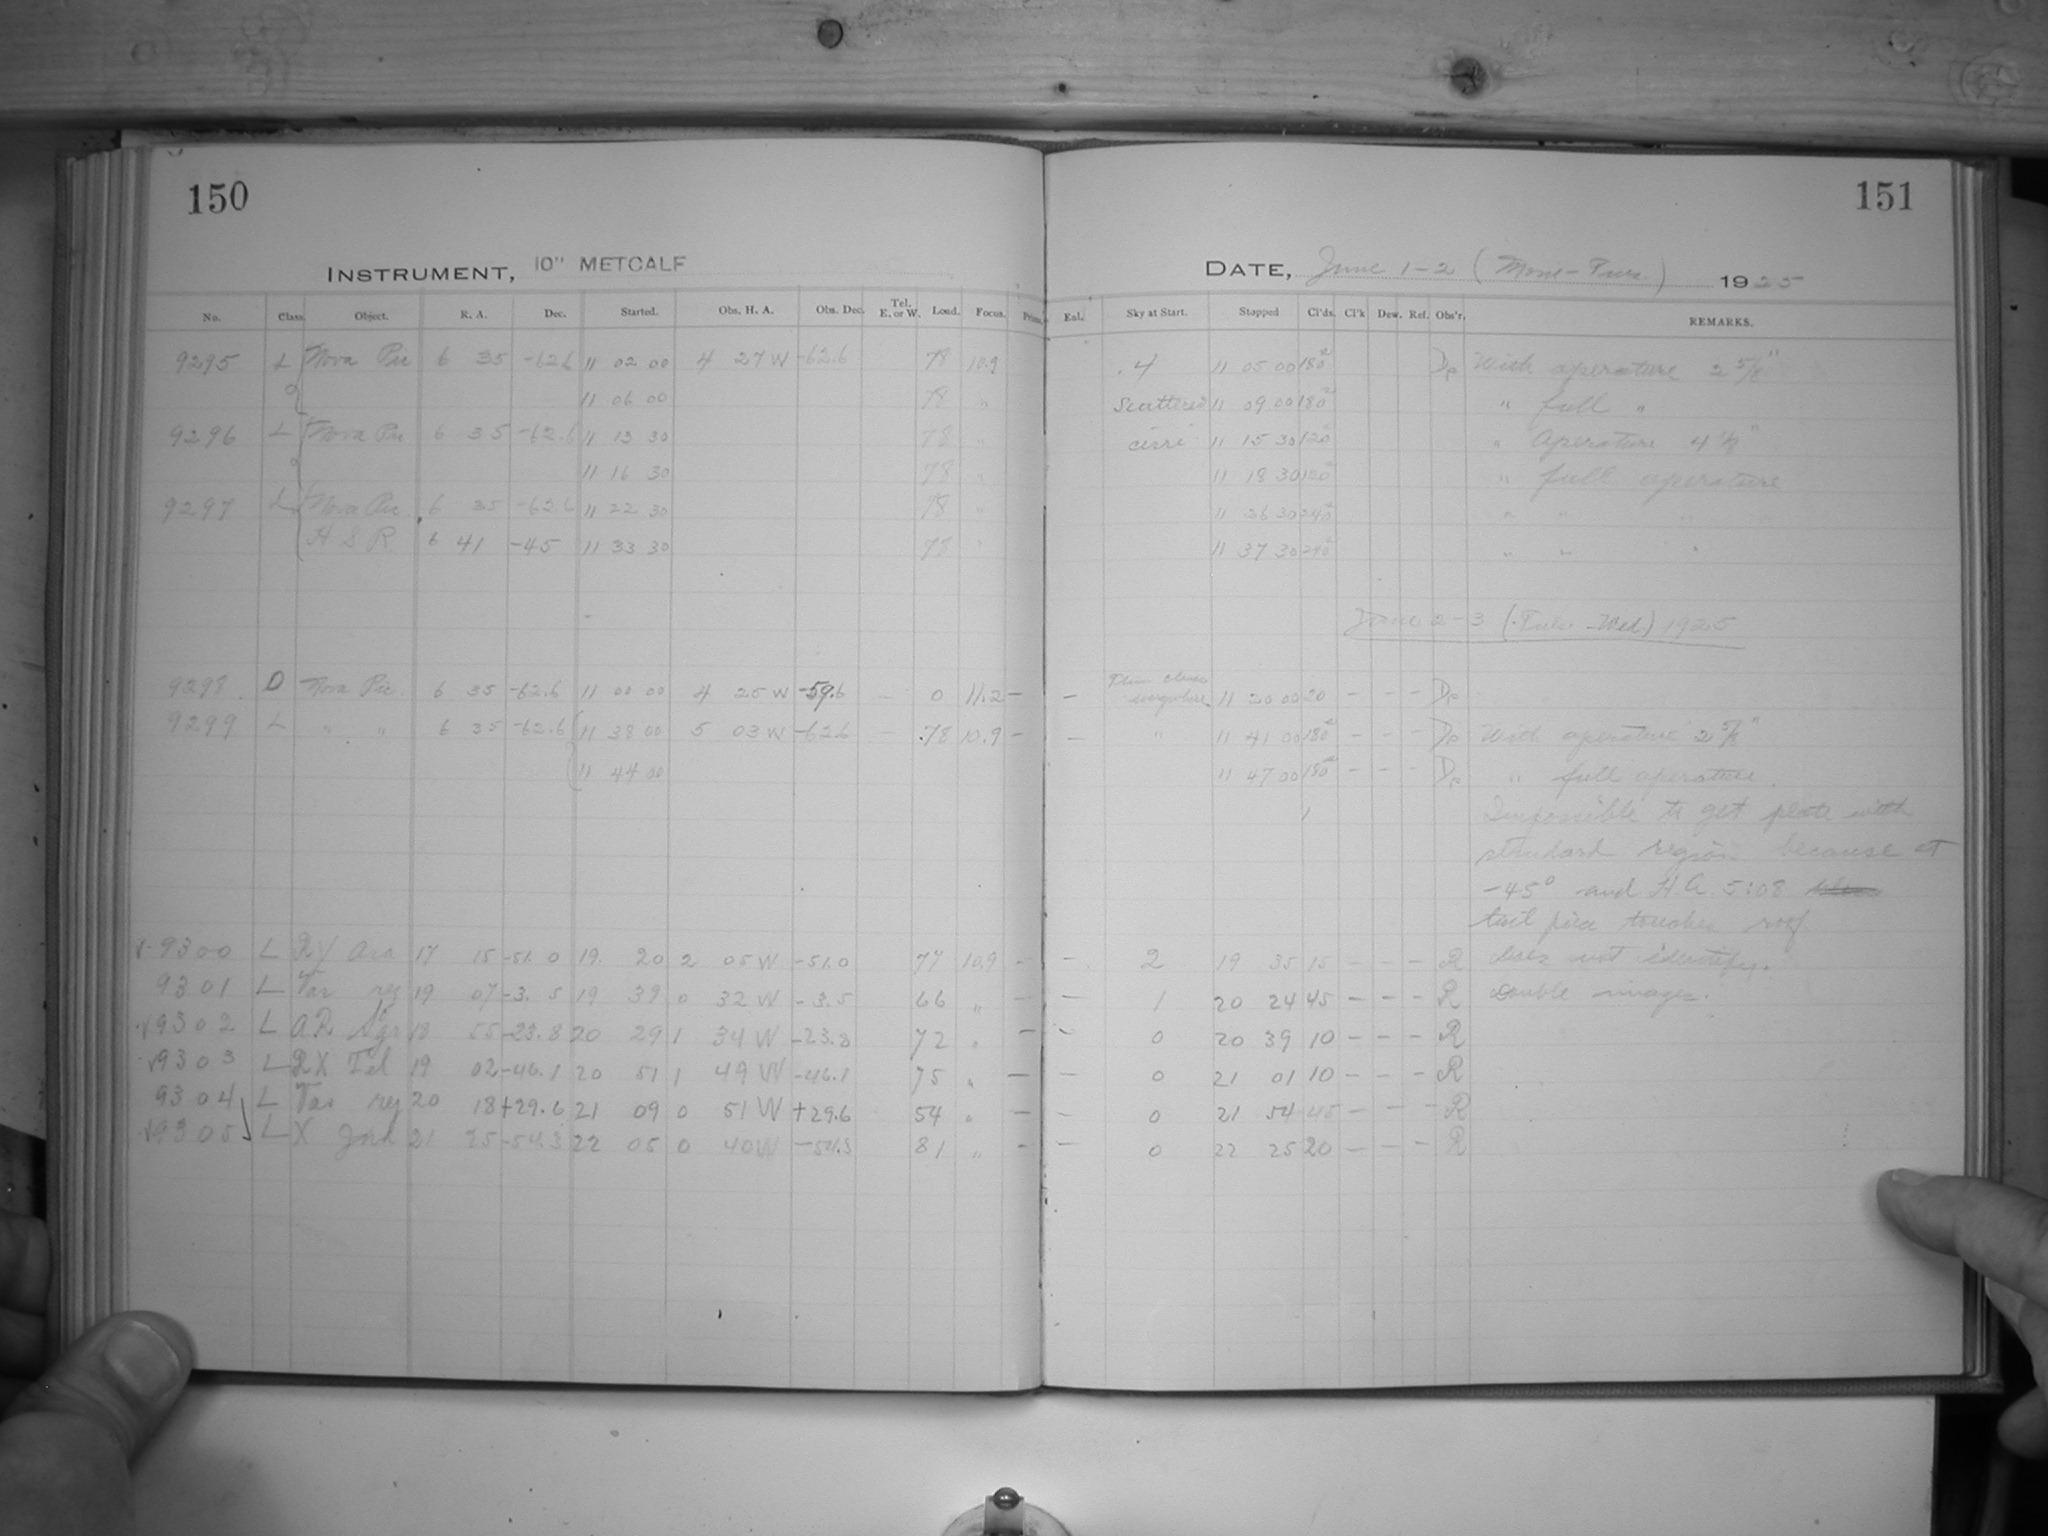 150
151
INSTRUMENT, 10" METCALF
DATE, June 1-2 (Mon-Tues) 1925
No. Class. Object. R. A. Dec. Started. Obs. H. A. Obs. Dec. Tel. E. or W. Load. Focus. Prism. Eal. Sky at Start. Stopped Cl'ds. Cl'k Dew. Ref. Obs'r. REMARKS.
9295 L Nova Pic 6 35 -62.6 11 02 00 4 27 W -62.6 78 10.9 .4 11 05 00 180s With aperature 2 5/8"
11 06 00 78 " Scattered 11 09 00 180s " full "
9296 L Nova Pic 6 35 -62.6 11 13 30 78 " cirri 11 15 30 120s " Aperature
11 16 30 78 " 11 18 30 120s " full aperature
9297 L Nova Pic 6 35 -62.6 11 22 30 78 " 11 30 240s " " "
H S R 6 41 -45 11 33 30 78 " 11 37 30 240s " " "
June 2-3 (Tues-Wed) 1925
9298 D Nova Pic. 6 35 -62.6 11 00 00 4 25 W -59.6 — 0 11.2 — — 11 20 00 20 - - - De
9299 L " " 6 35 -62.6 11 38 00 5 03 W -62.6 — .78 10.9 — — " 11 41 00 180s - - - De With aperature 2 5/8"
11 44 00 11 47 00 180s - - - De " full aperature.
Impossible to get plate with
standard region because at
-45° and H.A. 5:08
touches roof
9300 L RY Ara 17 15 -51.0 19. 20 2 05 W -51.0 77 10.9 — — 2 19 35 15 - - - R does not identify.
9301 L Var reg 19 07 -3.5 19 39 0 32 W -3.5 66 " — — 1 20 24 45 - - - R Double images.
9302 L AR Sgr 18 55 -23.8 20 29 1 34 W -23.8 72 " — — 0 20 39 10 - - - R
9303 L RX Tel 19 02 -46.1 20 51 1 49 W -46.1 75 " — — 0 21 01 10 - - - R
9304 L Var reg 20 18 +29.6 21 09 0 51 W +29.6 54 " — — 0 21 54 45 - - - R
9305 L X Ind 21 25 -54.3 22 05 0 40 W -54.3 81 " — — 0 22 25 20 - - - R